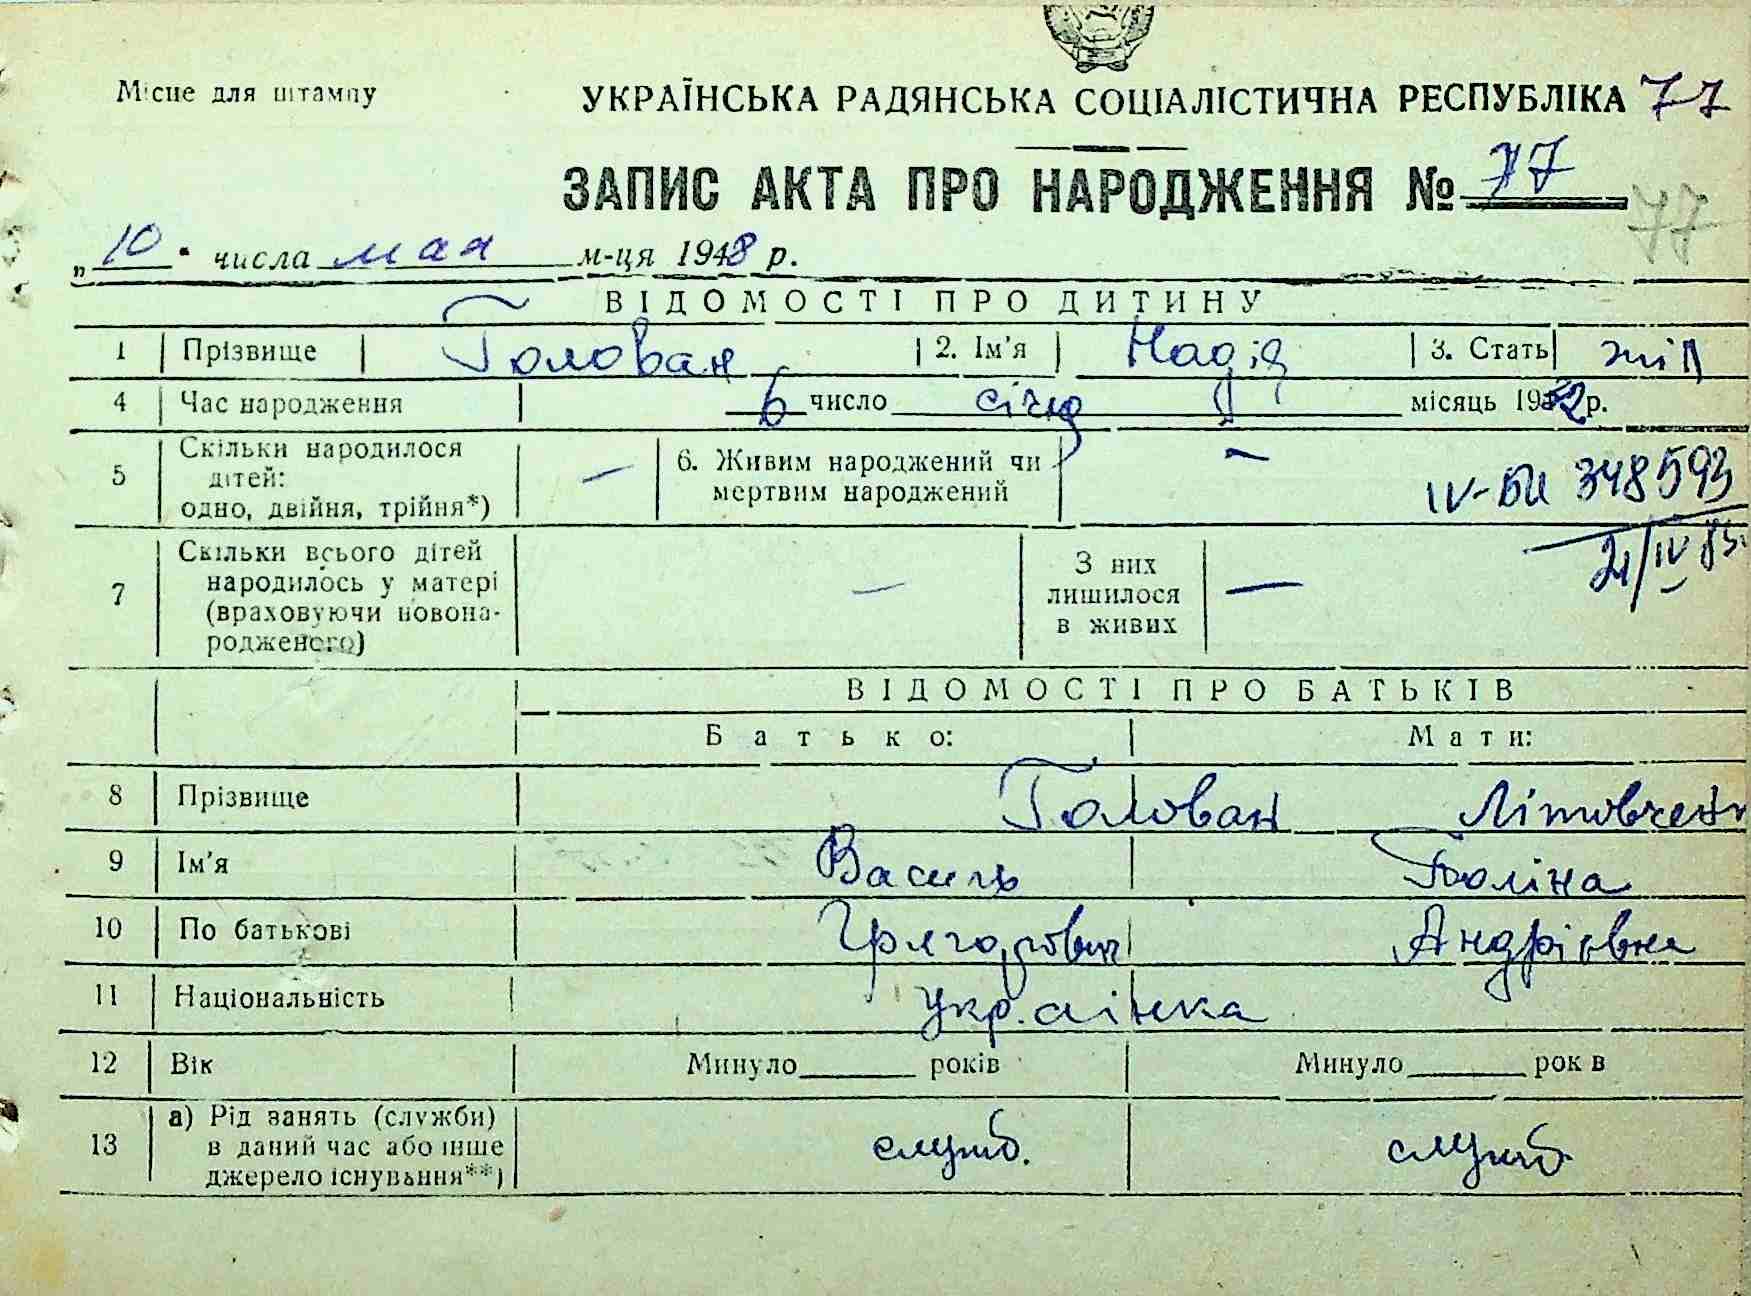 Місце для штампу
УКРАЇНСЬКА РАДЯНСЬКА СОЦІАЛІСТИЧНА РЕСПУБЛІКА 77
ЗАПИС АКТА ПРО НАРОДЖЕННЯ № 77
77
„10" числа мая м-ця 1948 р.
ВІДОМОСТІ ПРО ДИТИНУ
1 Прізвище Голован 2. Ім'я Надія 3. Стать жін
4 Час народження 6 число січня місяць 19 р.
5 Скільки народилося дітей: одно, двійня, трійня*) — 6. Живим народжений чи мертвим народжений —
IV-БИ 348593
21/IV 83.
7 Скільки всього дітей народилось у матері (враховуючи новонародженого) — З них лишилося в живих —
ВІДОМОСТІ ПРО БАТЬКІВ
Батько: Мати:
8 Прізвище Голован Літовчен
9 Ім'я Василь Поліна
10 По батькові Григорович Андріівна
11 Національність українка
12 Вік Минуло____ років Минуло____ рок в
13 а) Рід занять (служби) в даний час або інше джерело існування**) служб. служб